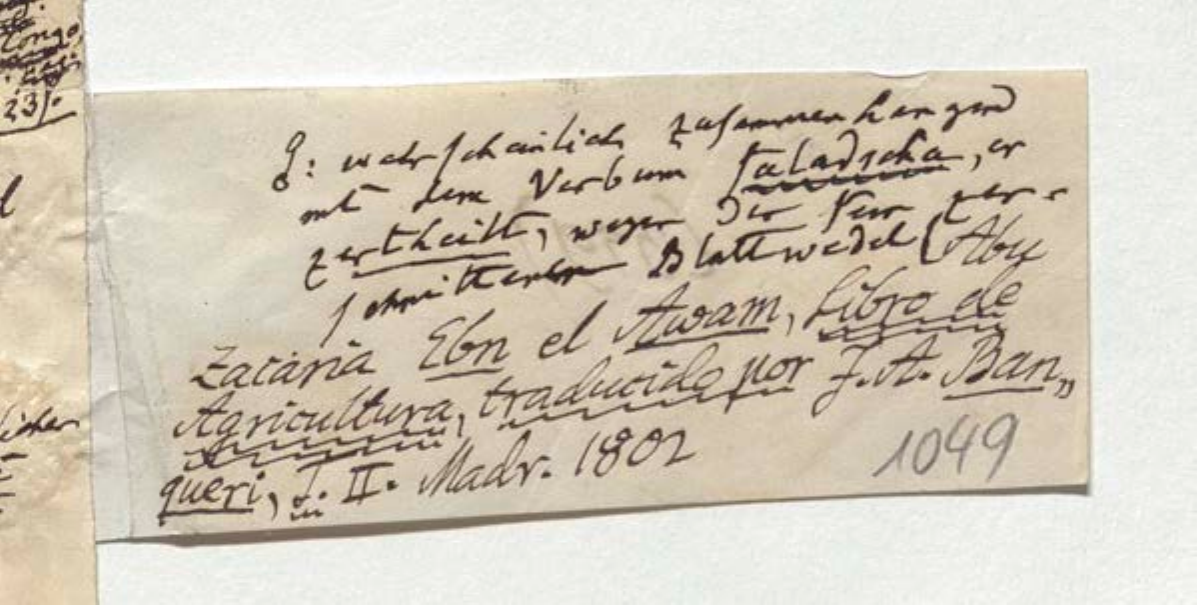 Congo,
23).
g: wahrscheinlich zusammenhangend
mit dem Verbum faladscha, er
zertheilt, wegen der Fein zer-
schnittenen Blattwedel (Abu
Zacaria Ebn el Awam, Libro de
Agricultura, traducido por J. A. Ban„
queri, T. II. Madr. 1802
1049
licher